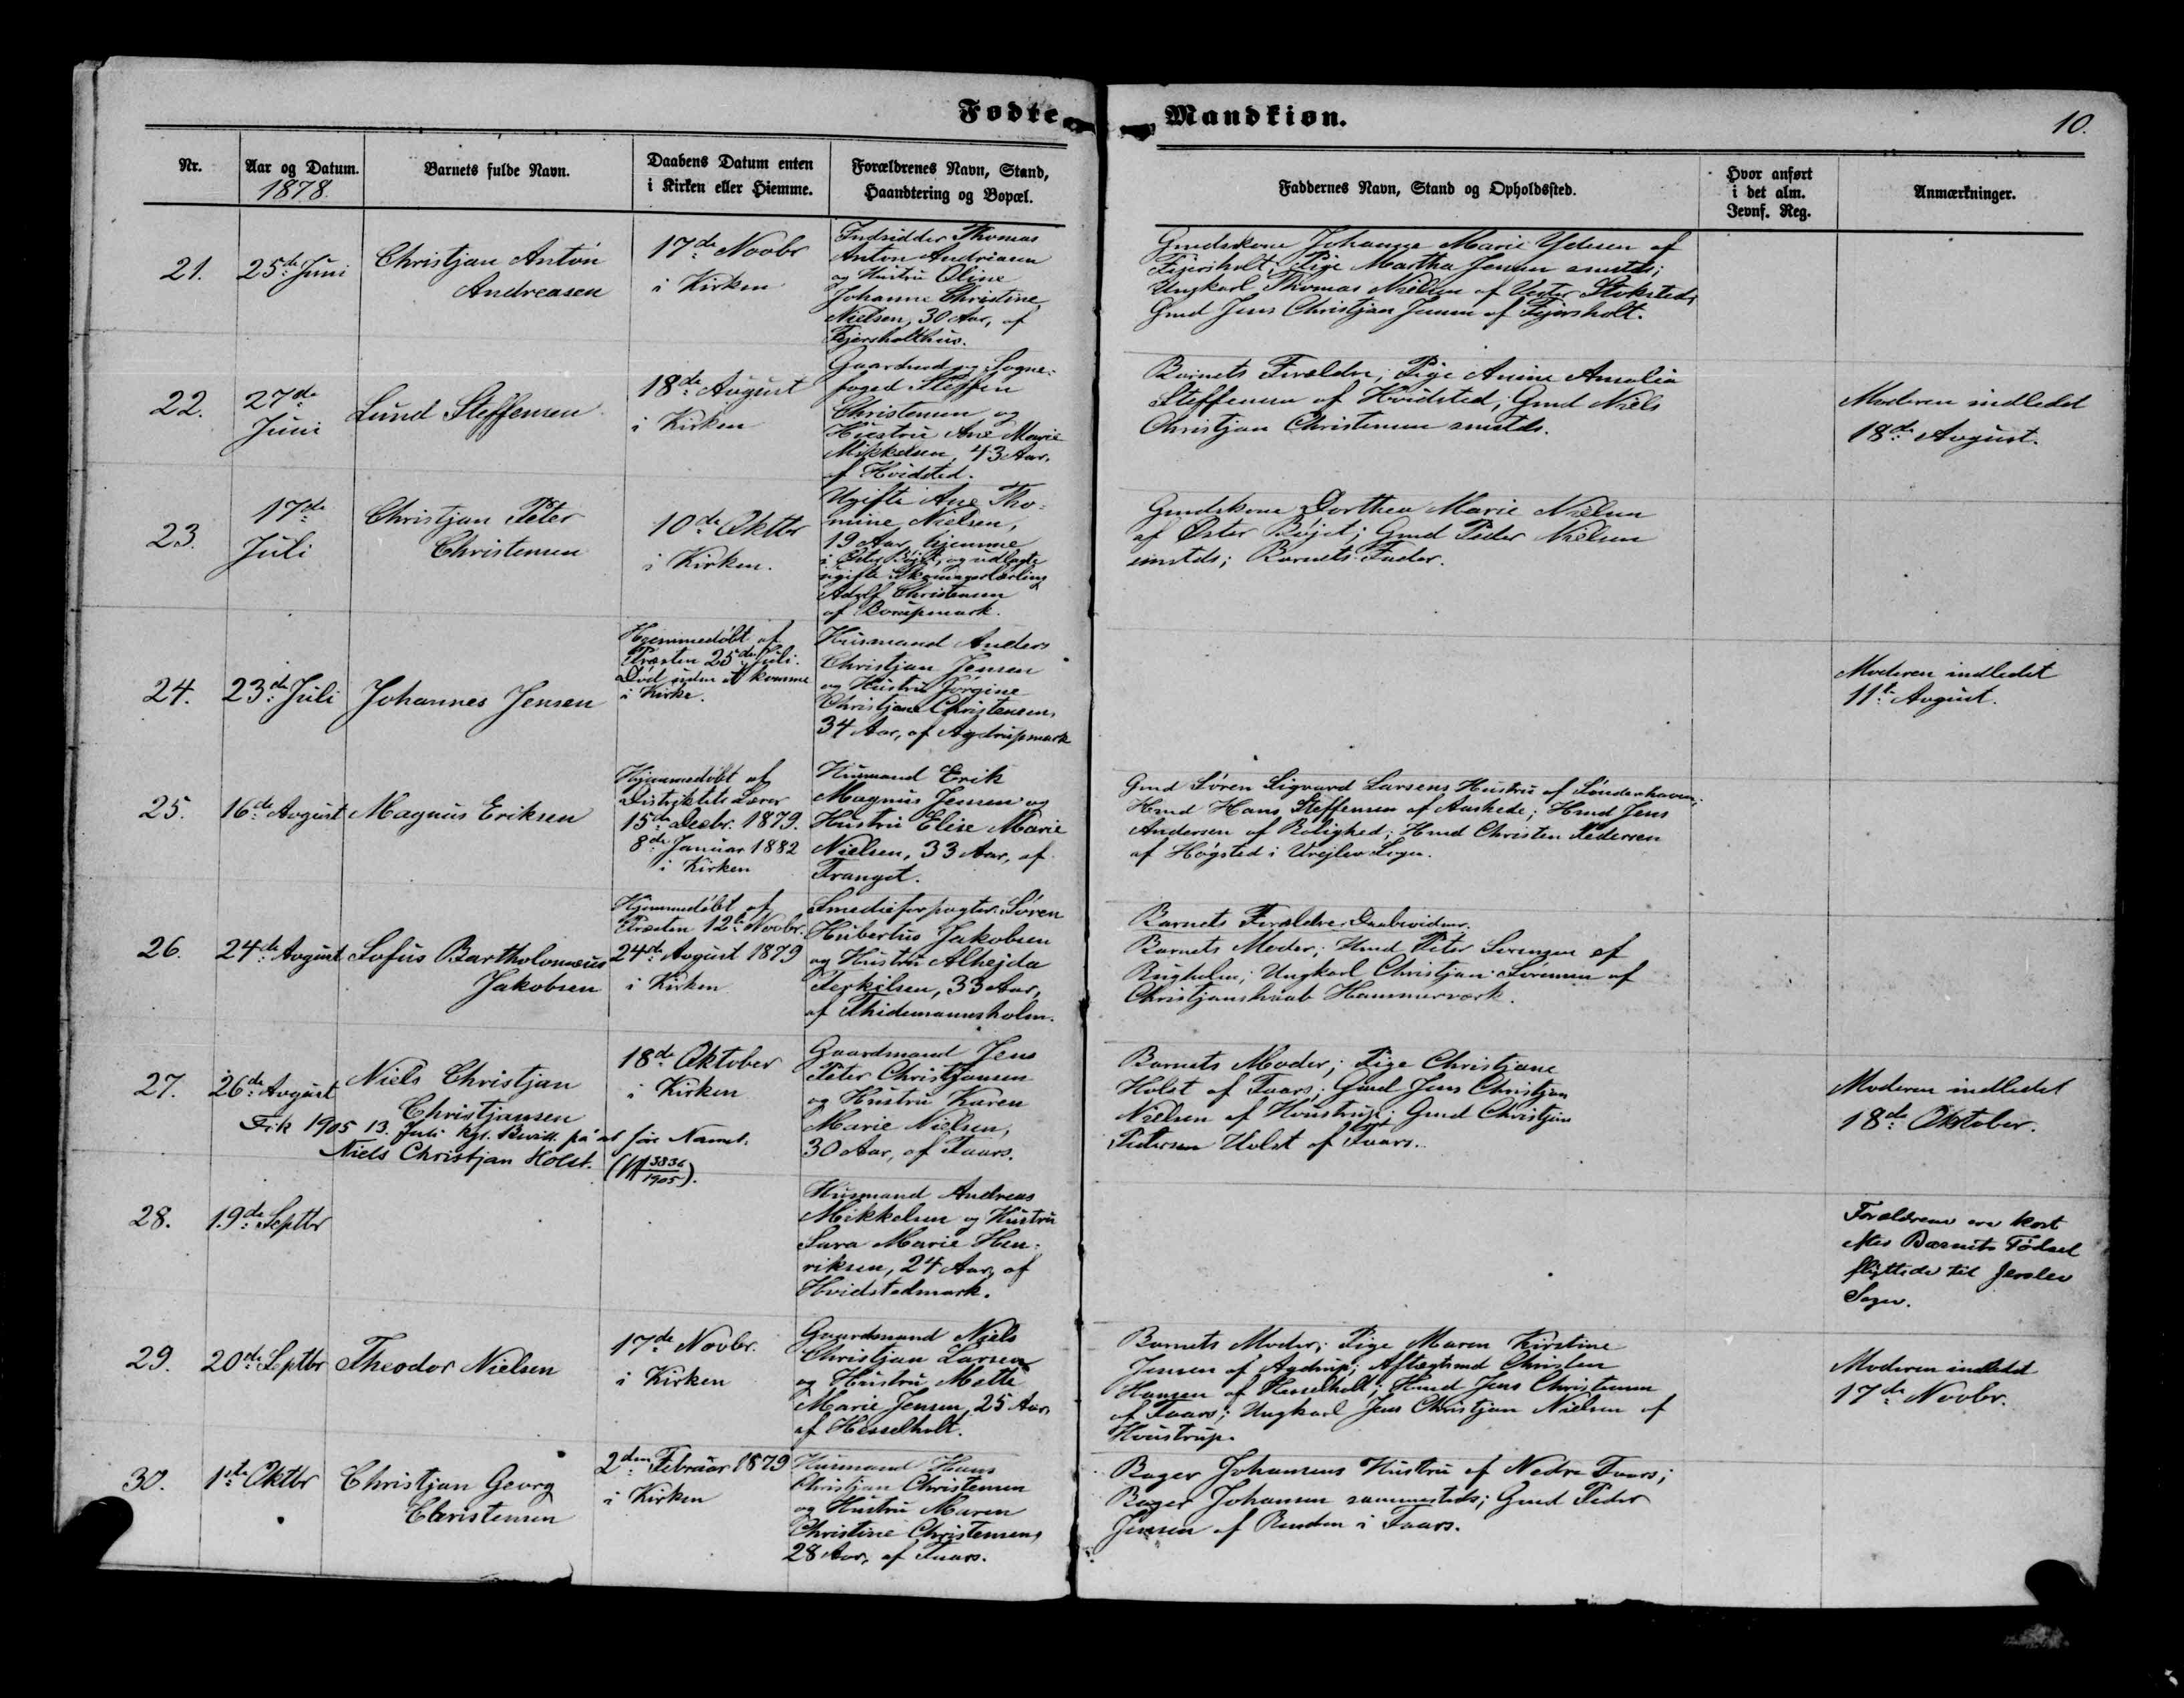 Fødte Mandkiøn.
10.
Nr.
Aar og Datum.
1878.
Barnets fulde Navn.
Daabens Datum enten
i Kirken eller Hiemme.
Forældrenes Navn, Stand,
Haandtering og Bopæl.
Faddernes Navn, Stand og Opholdssted.
Hvor anført
i det alm.
Jevnf. Reg.
Anmærkninger.
21.
25de Juni
Christjan Anton
Andreasen
17de Novbr
i Kirken
Indsidder Thomas
Anton Andriasen
og Hustru Oline
Johanne Christine
Nielsen, 30 Aar, af
Fejersholthus.
Gmdskone Johanne Marie Ydesen af
Fejersholt; Pige Martha Jensen smstds;
Ungkarl Thomas Nielsen af Vester Stoksted;
Gmd Jens Christjan Jensen af Fejersholt.
22.
27de
Juni
Lund Steffensen
18de August
i Kirken
Gaardmd og Sogne-
foged Steffen
Christensen og
Hustru Ane Marie
Mikkelsen, 43 Aar,
af Hvidsted.
Barnets Forældre; Pige Anine Amalia
Steffensen af Hvidsted; Gmd Niels
Christjan Christensen smstds.
Moderen indledet
18de August.
23.
17de
Juli
Christjan Peter
Christensen
10de Oktbr
i Kirken.
Ugifte Ane Tho-
mine Nielsen,
19 Aar, hjemme
i Øster Bøjet, og udlagte
ugifte Skomagerlærling
Adolf Christensen
af Borupmark.
Gmdskone Dorthea Marie Nielsen
af Øster Bøjet; Gmd Peder Nielsen
smstds; Barnets Fader.
24.
23de Juli
Johannes Jensen
Hjemmedøbt af
Præsten 25de Juli.
Død uden at komme
i Kirke.
Husmand Anders
Christjan Jensen
og Hustru Jørgine
Christjane Christensen,
34 Aar, af Agdrupmark
Moderen indledet
11te August.
25.
16de August
Magnus Eriksen
Hjemmedøbt af
Distriktets Lærer
15de Decbr. 1879.
8de Januar 1882
i Kirken
Husmand Erik
Magnus Jensen og
Hustru Elise Marie
Nielsen, 33 Aar, af
Tranget.
Gmd Søren Sigvard Larsens Hustru af Sønderhaven;
Hmd Hans Steffensen af Aashede; Hmd Jens
Andersen af Rolighed; Hmd Christen Pedersen
af Høgsted i Vrejlev Sogn.
26.
24de August
Sofus Bartholomæus
Jakobsen
Hjemmedøbt af
Præsten 12te Novbr.
24de August 1879
i Kirken
Smedieforpagter Søren
Hubertus Jakobsen
og Hustru Alhejda
Terkilsen, 33 Aar,
af Thidemannsholm.
Barnets Forældre Daabsvidner.
Barnets Moder; Hmd Peter Sørensen af
Rugholm; Ungkarl Christjan Sørensen af
Christjanshaab Hammerværk.
27.
26de August
Niels Christjan
Christjansen
Fik 1905 13. Juli kgl. Bevill. på at føre Navnet:
Niels Christjan Holst. (3836/1905).
18de Oktober
i Kirken
Gaardmand Jens
Peter Christjansen
og Hustru Karen
Marie Nielsen,
30 Aar, af Taars.
Barnets Moder; Pige Christjane
Holst af Taars; Gmd Jens Christjan
Nielsen af Hvustrup; Gmd Christjan
Pedersen Holst af Taars.
Moderen indledet
18de Oktober.
28.
19de Septbr
Husmand Andreas
Mikkelsen og Hustru
Sara Marie Hen-
riksen, 24 Aar, af
Hvidstedmark.
Forældrene ere kort
efter Barnets Fødsel
flyttede til Jerslev
Sogn.
29.
20de Septbr
Theodor Nielsen
17de Novbr.
i Kirken
Gaardmand Niels
Christjan Larsen
og Hustru Mette
Marie Jensen, 25 Aar,
af Hesselholt.
Barnets Moder; Pige Maren Kirstine
Jensen af Agdrup; Aftægtsmd Christen
Hansen af Hesselholt; Hmd Jens Christensen
af Taars; Ungkarl Jens Christjan Nielsen af
Hvustrup.
Moderen indledet
17de Novbr.
30.
1ste Oktbr
Christjan Georg
Christensen
2den Februar 1879
i Kirken
Husmand Hans
Christjan Christensen
og Hustru Maren
Christine Christensen,
28 Aar, af Taars.
Bager Johansens Hustru af Nedre Taars;
Bager Johansen sammesteds; Gmd Peder
Jensen af Renden i Taars.